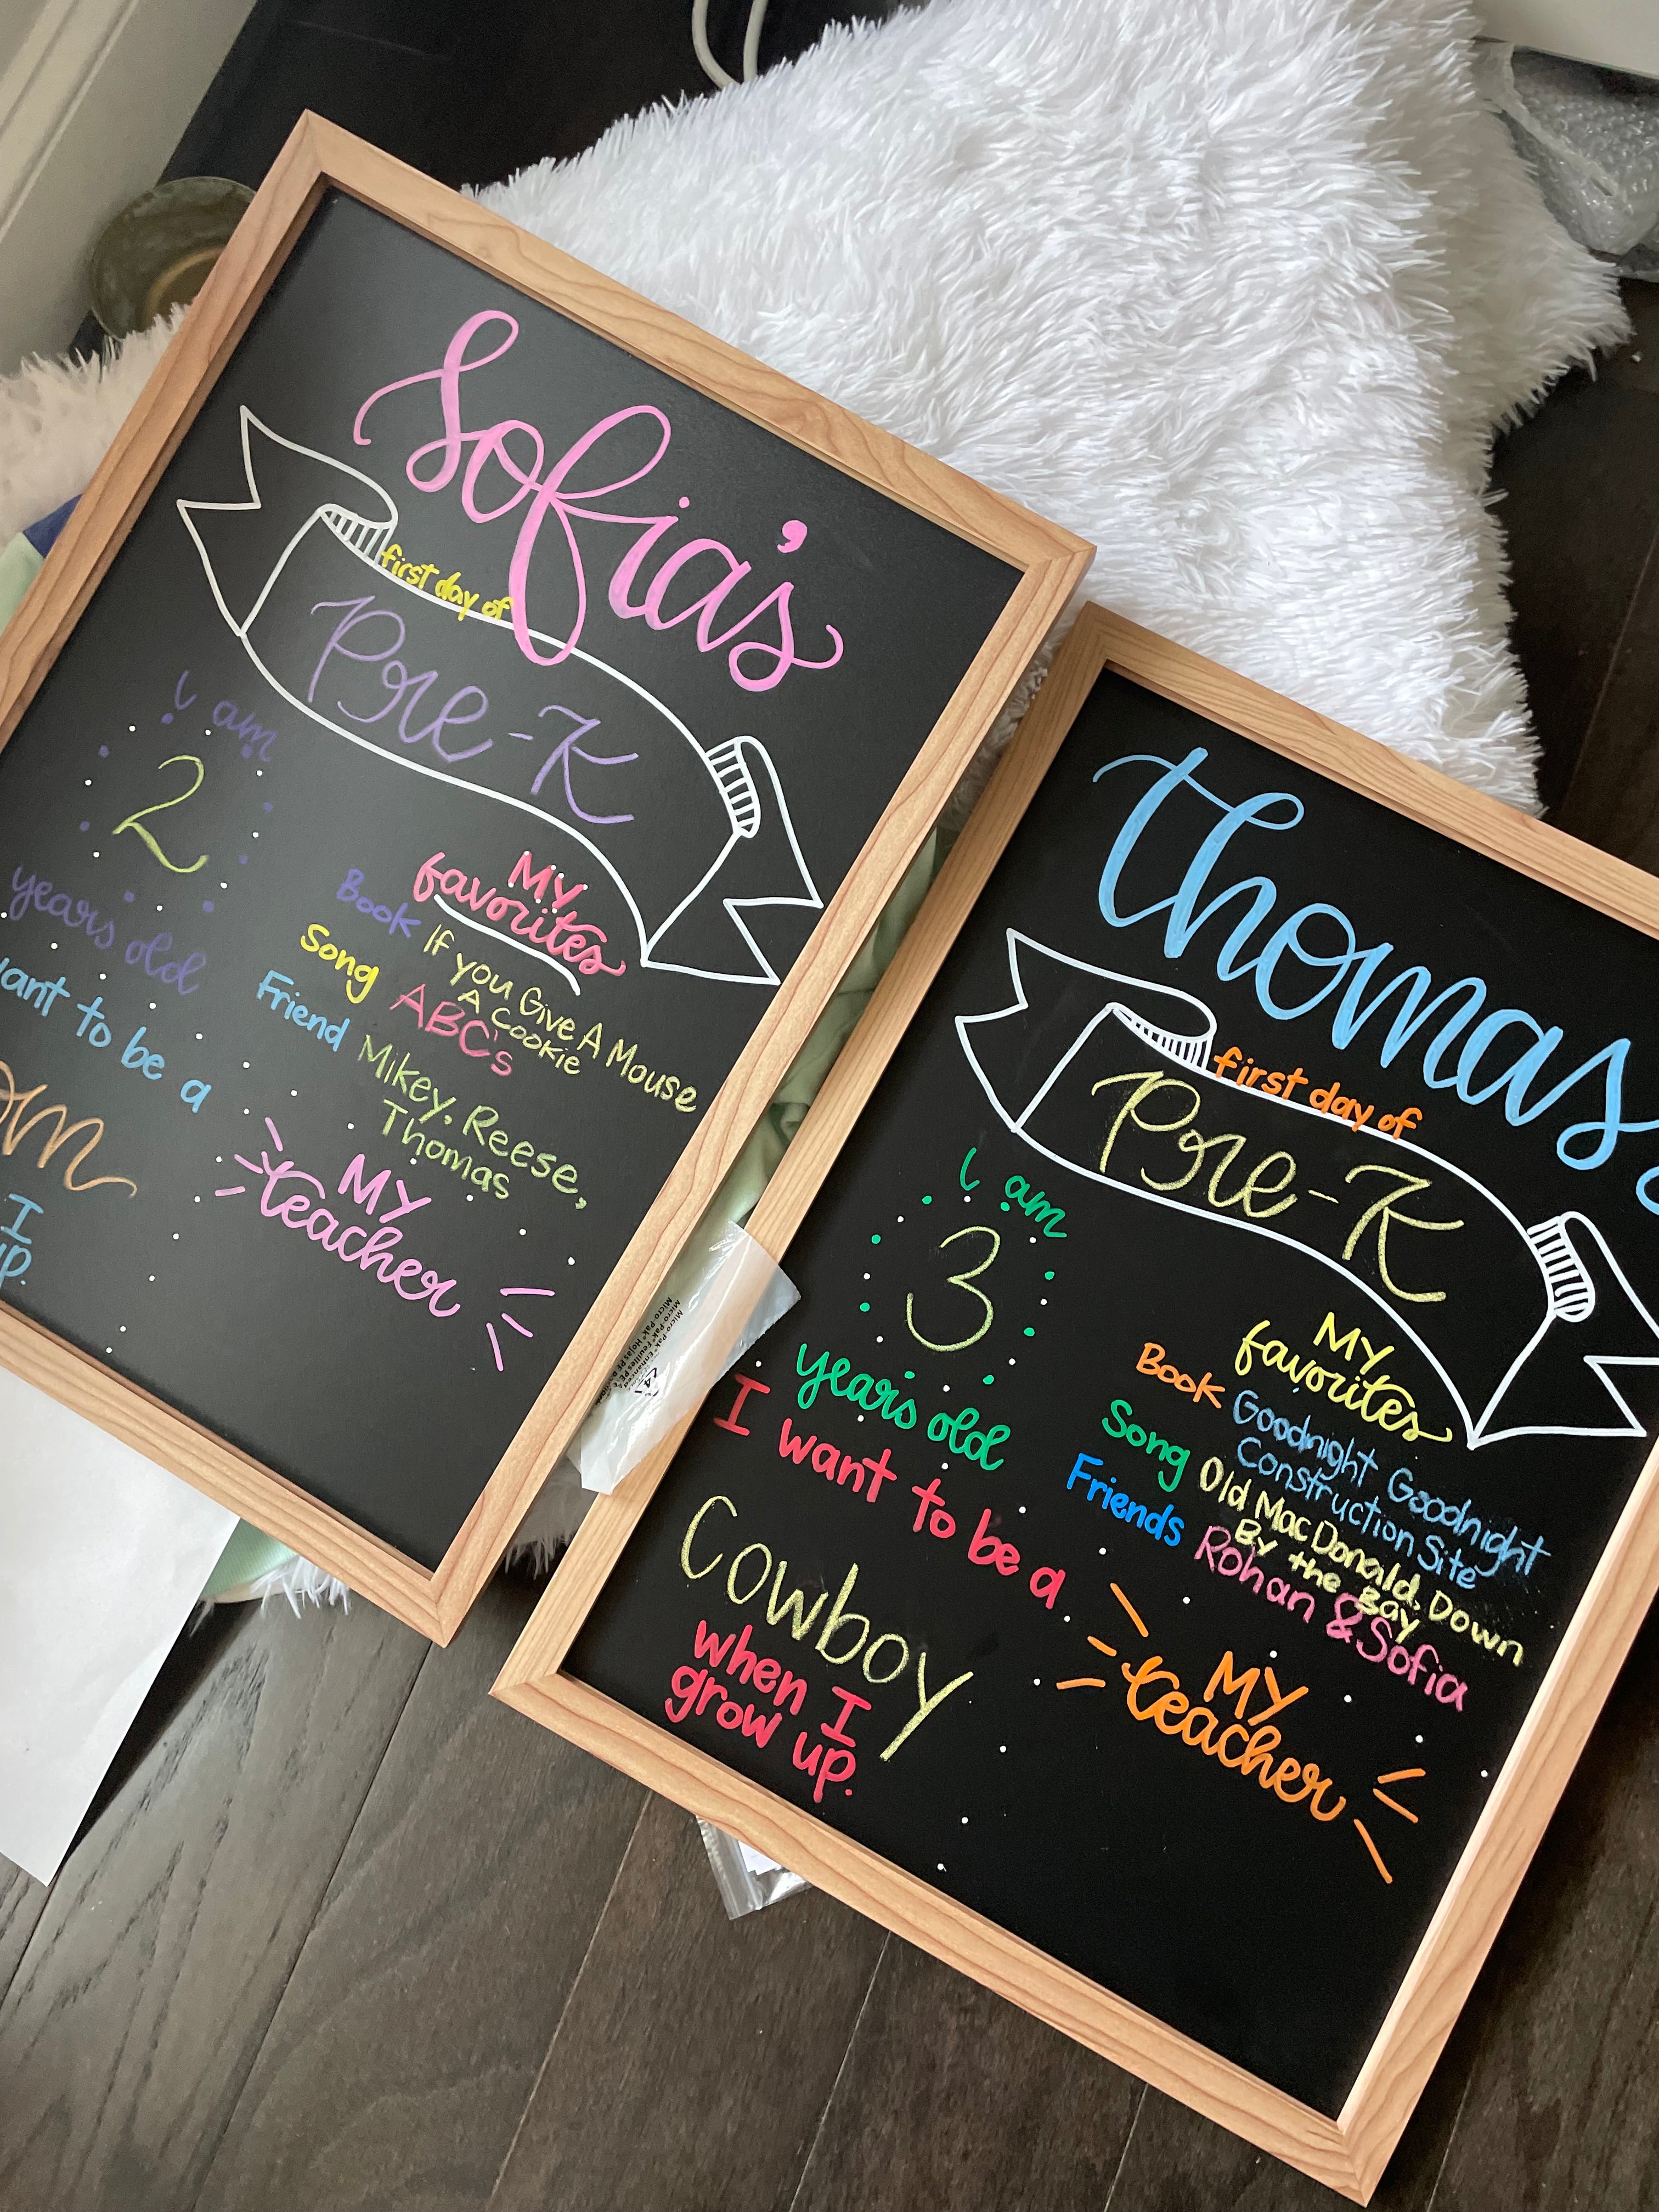 Sofia's
first day of
Pre-K
I am
2
years old
want to be a
I
up.
My
favorites
Book If you Give A Mouse
A Cookie
Song ABC's
Friend Mikey, Reese,
Thomas
My
teacher
Thomas
first day of
Pre-K
I am
3
years old
I want to be a
Cowboy
when I
grow up.
My
favorites
Book Goodnight Goodnight
Construction Site
Song Old MacDonald, Down
By the Bay
Friends Rohan & Sofia
My
teacher